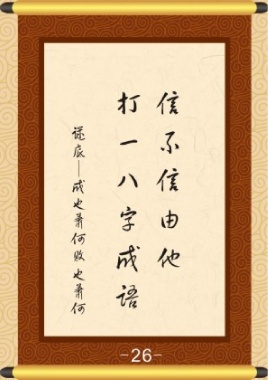 信不信由他
打一八字成语
谜底—成也萧何败也萧何
-26-